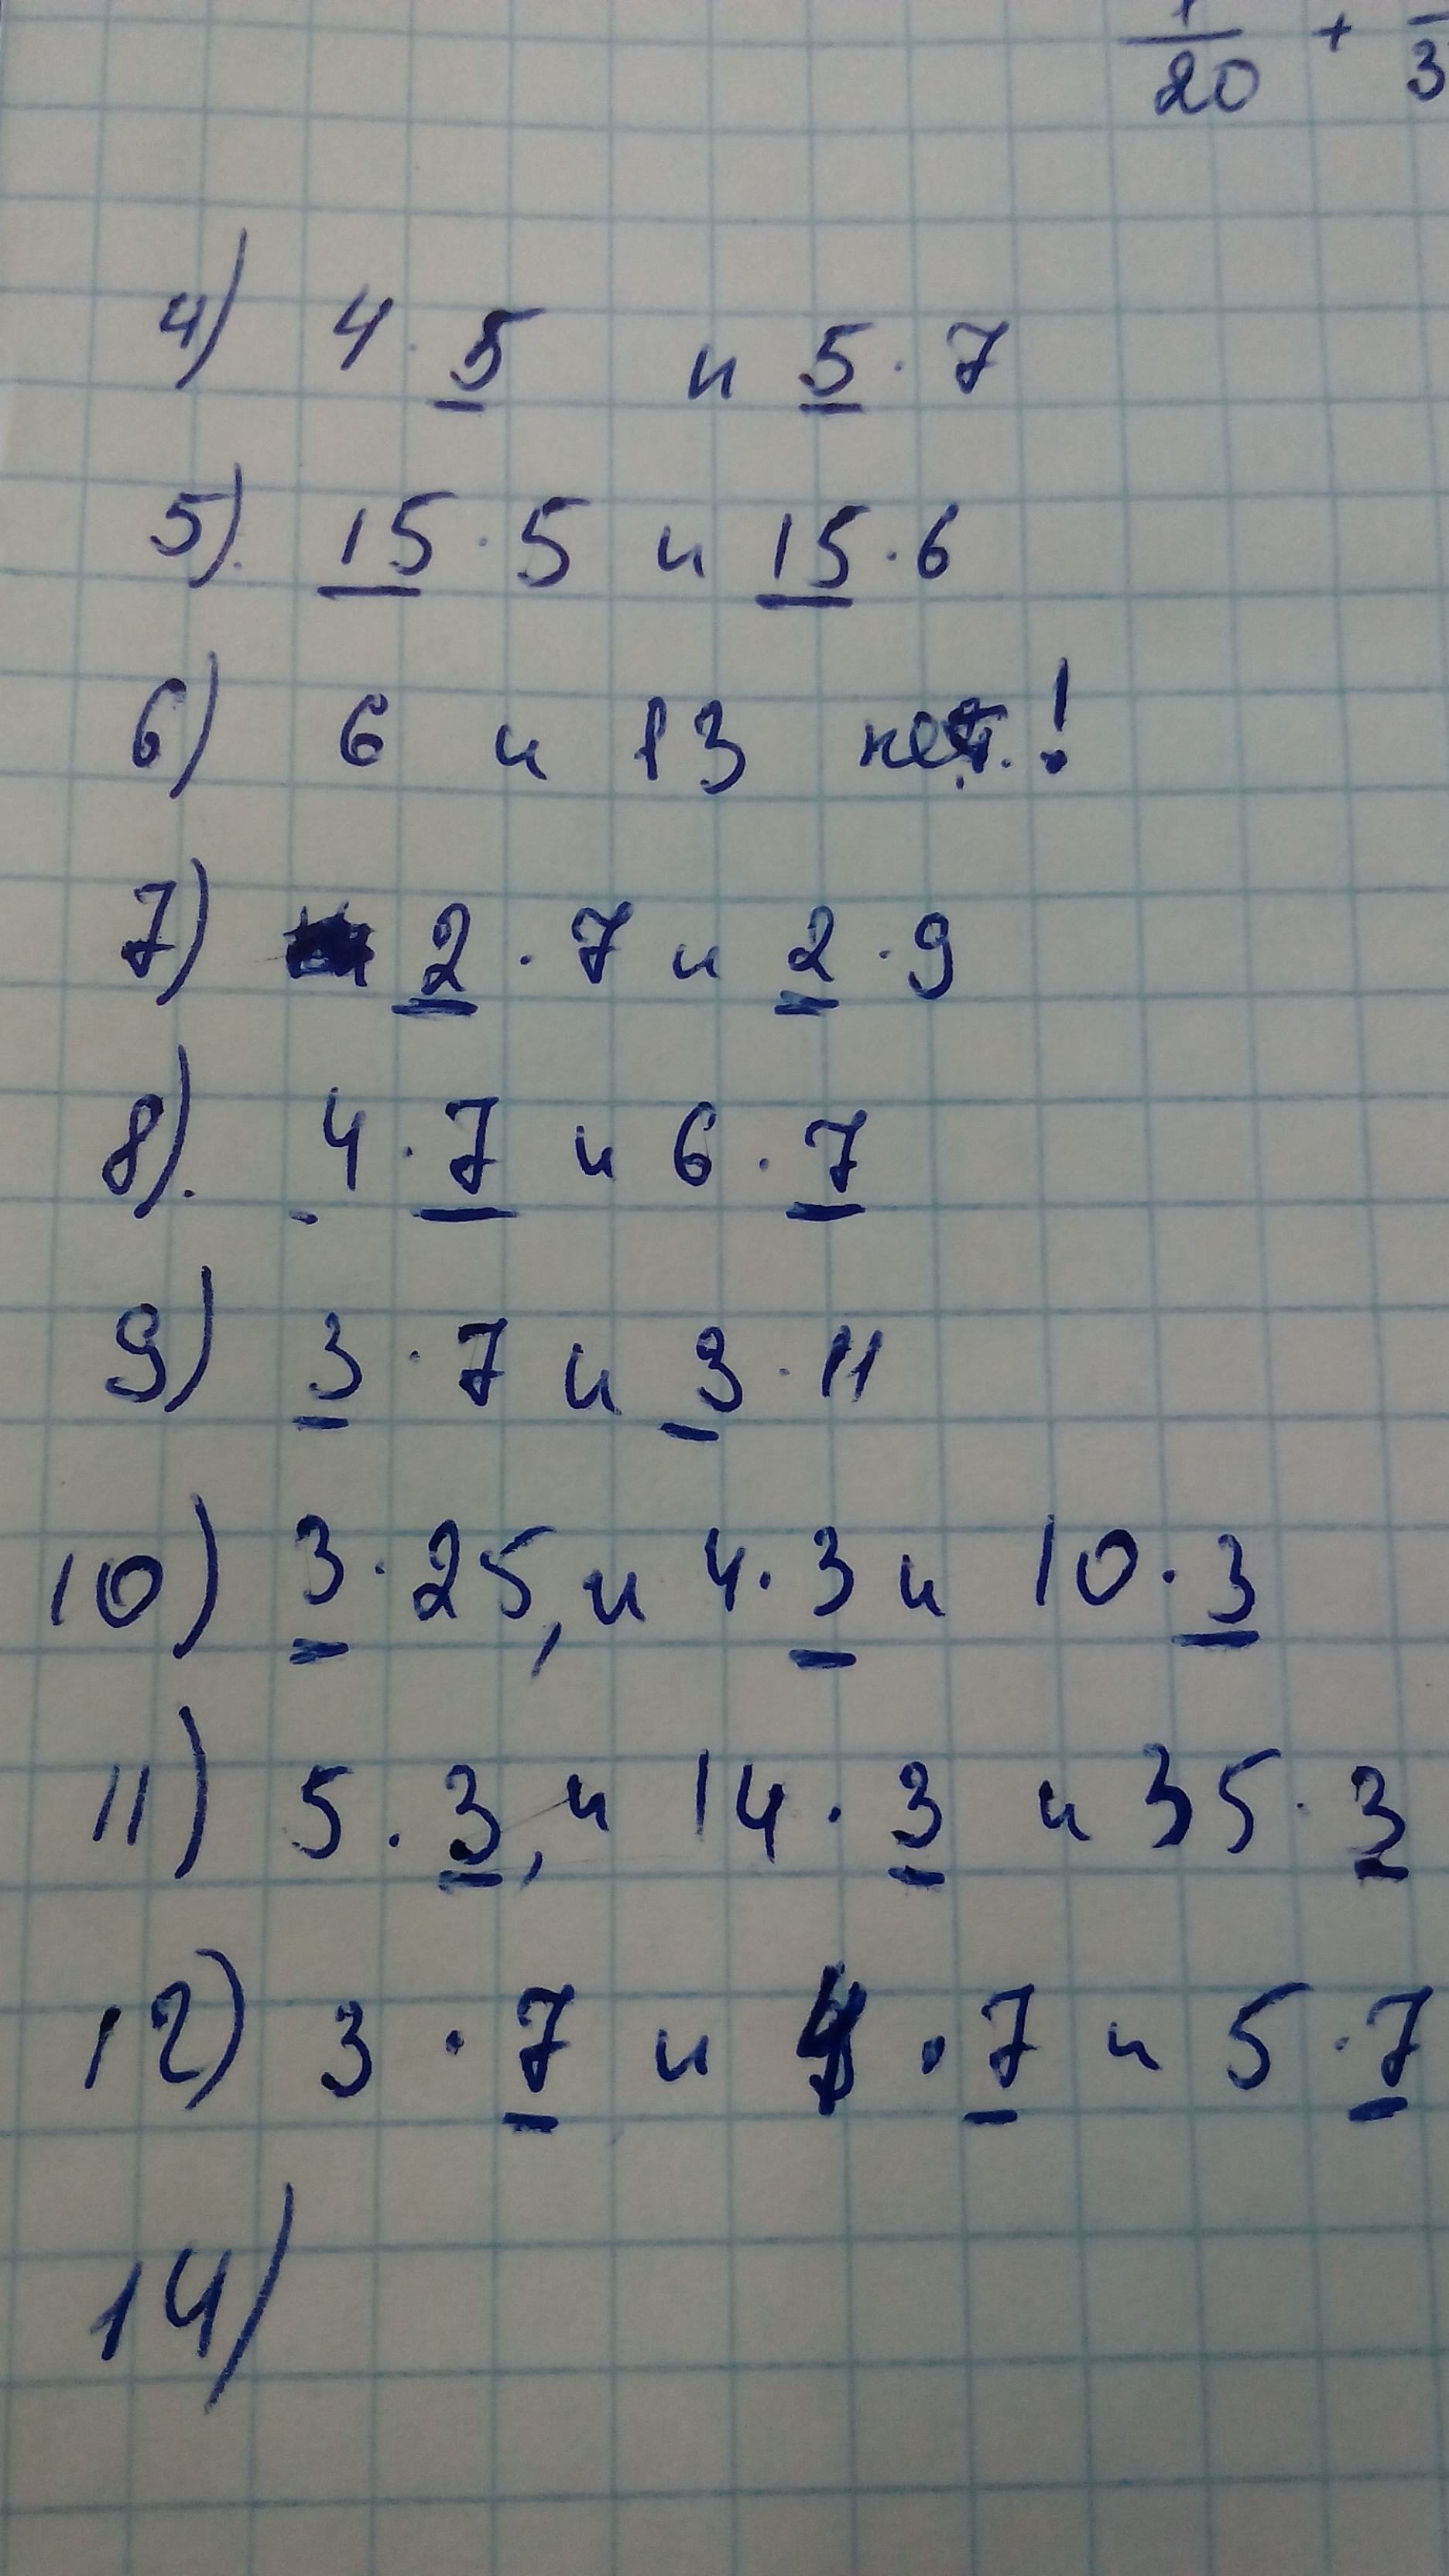 1/20 + /3
4) 4 · 5 и 5 · 7
5). 15 · 5 и 15 · 6
6) 6 и 13 нет.!
7) 2 · 7 и 2 · 9
8). 4 · 7 и 6 · 7
9) 3 · 7 и 3 · 11
10) 3 · 25, и 4 · 3 и 10 · 3
11) 5 · 3, и 14 · 3 и 35 · 3
12) 3 · 7 и · 7 и 5 · 7
14)